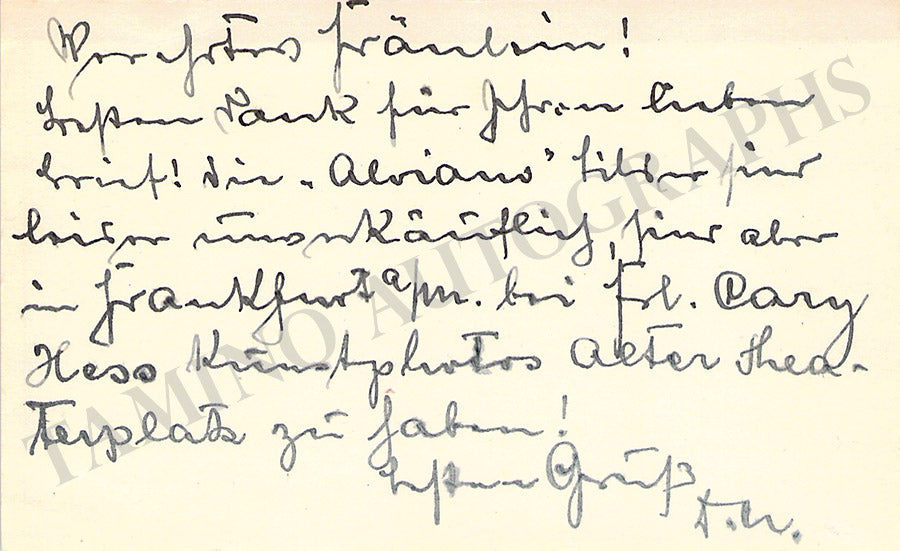 Verehrtes Fräulein!
besten Dank für Ihren lieben
brief! die „Alviano" bilder sind
leider unverkäuflich, sind aber
in Frankfurt a/m. bei Frl. Cary
Hess Kunstphotos alter Thea-
terplatz zu haben!
besten Gruß
TAMINO AUTOGRAPHS